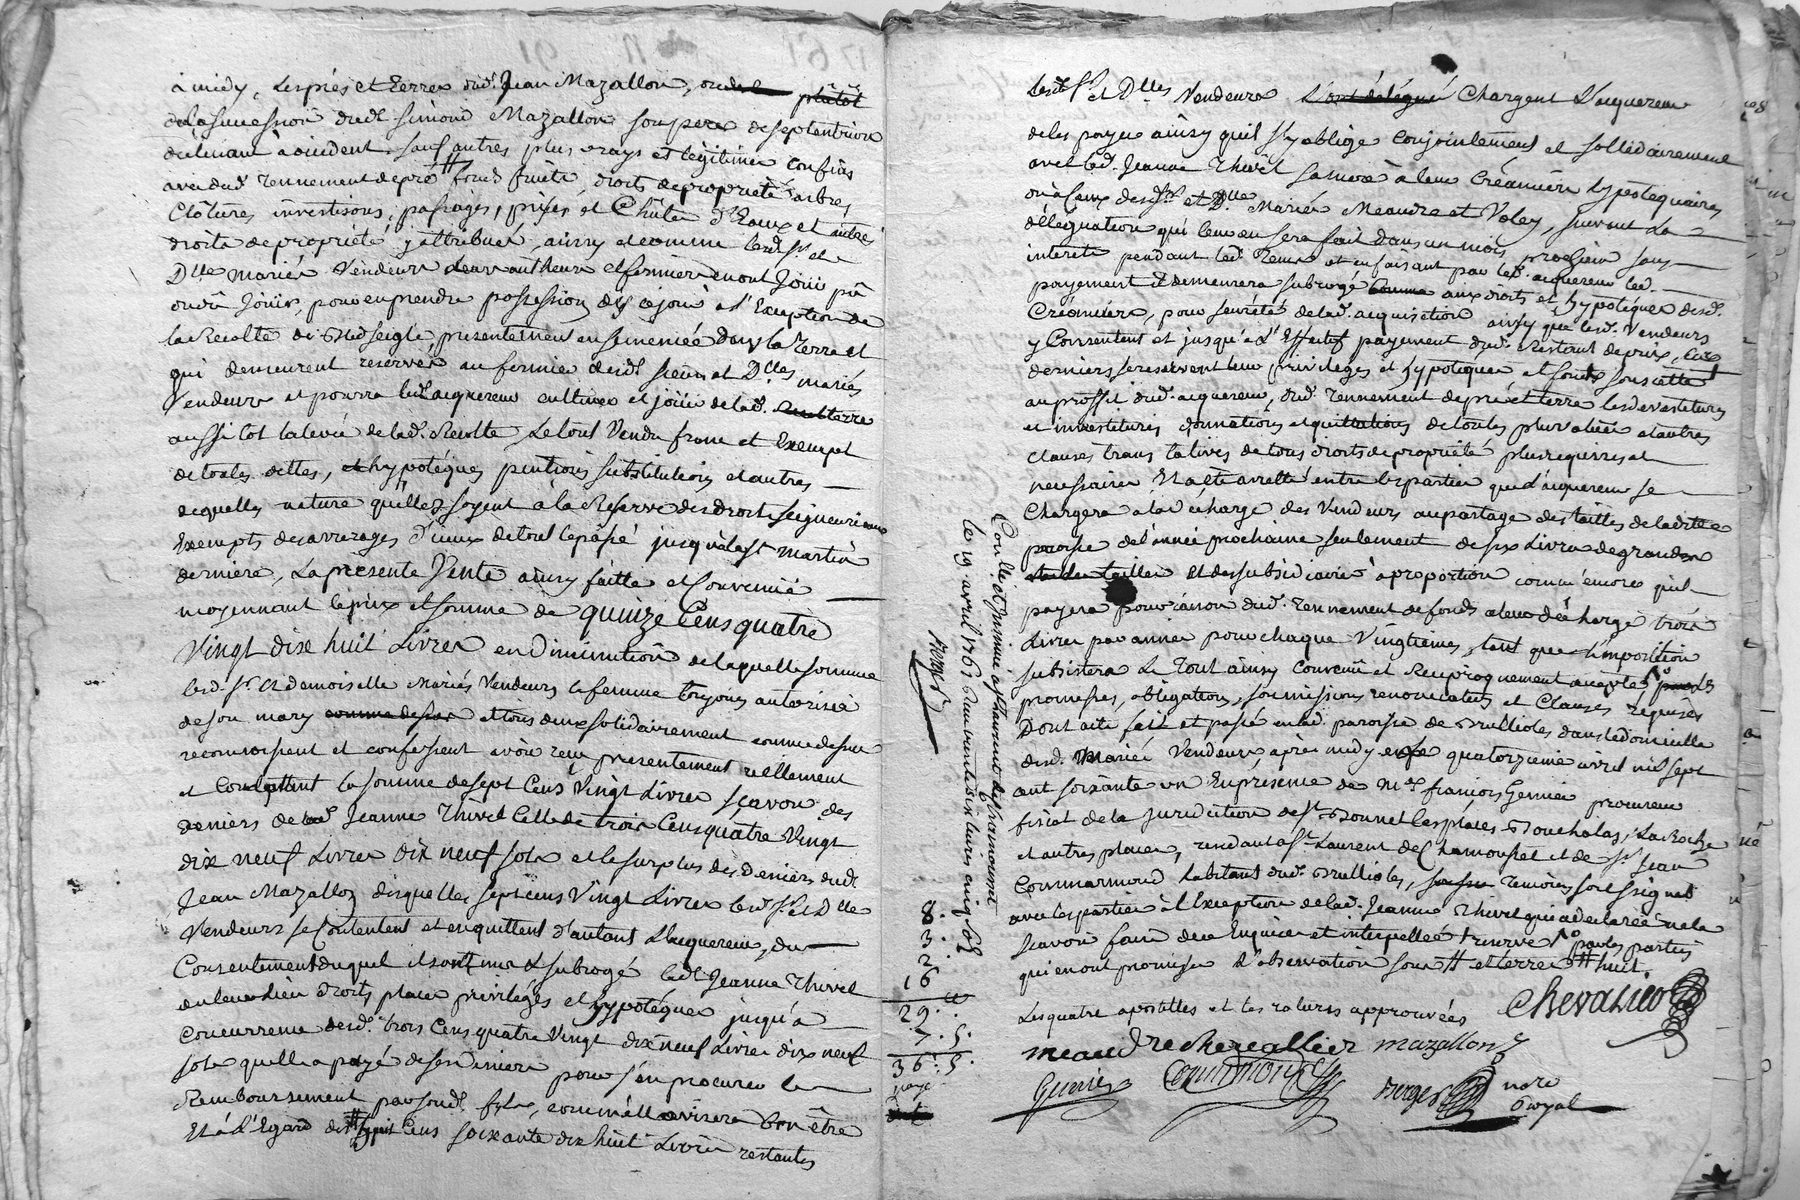 a midy, les prés et terres dud. Jean Mazallon, ou de
de la succession dud. Simond Mazallon son pere de septentrion
declinant a occident sauf autres plus vrays et legitimes confins
avec dud. tennement de pré # fonds fruits, droits de propriété arbres
Clôtures investisons, passages, prises et Chûtes d'Eaux et autres
droits de propriété y attribués, ainsy et comme lesd. Sr. et
Dlle mariés Vendeurs Leurs autheurs et fermiers en ont Joüi pû
ou dû Joüir, pour en prendre possession dès ce jour à l'Exception de
la Recolte de Bled seigle presentement ensemencée dans la terre et
qui demeurent reservés au fermier desd. sieur et Dlles mariés
Vendeurs et pourra led. acquereur cultiver et joüir de lad. terre
aussi tot la levée de lad. Recolte, Le tout Vendu franc et Exempt
de toutes dettes, hypotéques pentions substitutions et autres
de quelles nature qu'elles soyent a la Reserve des droits seigneuriaux
Exempts des arrerages d'iceux de tout le passé jusqu'a la St Martin
derniere, La presente Vente ainsy faitte et Convenüe
moyennant le prix et somme de quinze Cens quatre
Vingt dix huit Livres en Diminution de laquelle somme
lesd. Sr. et demoiselle Mariés Vendeurs la femme toujours autorisée
de son mary comme dessus et tous deux solidairement comme dessus
reconnoissent et confessent avoir reçu presentement réellement
et Contentent la somme de sept Cens Vingt Livres sçavoir des
Deniers de lad. Jeanne Thivel Celle de trois Cens quatre Vingt
dix neuf Livres dix neuf sols et le surplus des Deniers dud.
Jean Mazallon desquelles sept cens Vingt Livres lesd. Sr. et Dlle
Vendeurs se Contentent et en quittent d'autant L'acquereur, du
Consentement duquel ils ont mis et subrogé lad. Jeanne Thivel
en leurs lieu droits places privilèges et hypotéques jusqu'à
Concurrence desd. trois Cens quatre Vingt dix neuf Livres dix neuf
sols qu'elle a payé de ses deniers pour s'en procurer le
Remboursement par sond. fils, comm'elle avisera bon être
Et à l'Egard des # huit Cens soixante dix huit Livres restantes
8.
3.
2.
16
29.
7. 5.
36. 5.
payé
Controllé et Insinué a St Laurent de Chamousset
le 19 avril 1761 Reçu trente six livres cinq sols
lesd. Sr. et Dlles Vendeurs L'ont délégué Chargent L'acquereur
de les payer ainsy qu'il s'y oblige Conjointement et sollidairement
avec lad. Jeanne Thivel sa mere à leurs Créanciers hypotequaires
ou à Ceux desd. Sr. et Dlle Mariés Meaudre et Voley, suivant la
délégation qui leur en sera fait dans un mois prochain sans
interets pendant led. tems et en faisant par led. acquereur led.
payement il demeurera subrogé comme aux droits et hypotéques desd.
Créanciers, pour seureté de lad. acquisition ainsy que lesd. Vendeurs
y Consentent et jusqu'à l'Effectif payement dud. Restant de prix, Ces
derniers se reservent leur privileges et hypoteques et sont sous cette
au proffit dud. acquereur, dud. tennement de pré et terre les devestitures
et investitures donnations et quittations de toutes plus values et autres
clauses translatives de tous droits de propriété plus requises et
necessaires Et a été arretté entre les parties que l'acquereur se
Chargera à la décharge des Vendeurs au partage des tailles de ladite
paroisse de l'année prochaine seulement de six Livres de grande
tailles et des subsidiaires à proportion comm'encore qu'il
payera pour raison dud. tennement de fonds a leur décharge trois
Livres par année pour chaque Vingtieme, tant que l'imposition
subsistera Le tout ainsy Convenü et Reciproquement accepté par les
promesses, obligations, soumissions renonciations et Clauses requises
Dont acte fait et passé en lad. paroisse de Brullioles dans le domicille
desd. Mariés Vendeurs après midy le quatorzieme avril mil sept
cent soixante un En presence de Mre françois Gernier procureur
fiscal de la Jurisdiction de St Bonnet les places Bouchalas, La Roche
et autres places, residant a St. Laurent de Chamousset et de Sr Jean
Commarmond habitant dud. Brullioles, temoins soussignés
avec les parties à l'Exception de lad. Jeanne Thivel qui a declarée ne le
sçavoir faire de ce Enquise et interpellée reservé par les parties
qui en ont promises l'observation sous # et terre # huit.
Les quatre apostilles et les ratures approuvées
Chevallier
meaudre chevallier mazallon
Gernier Commarmond Berger nore
Royal